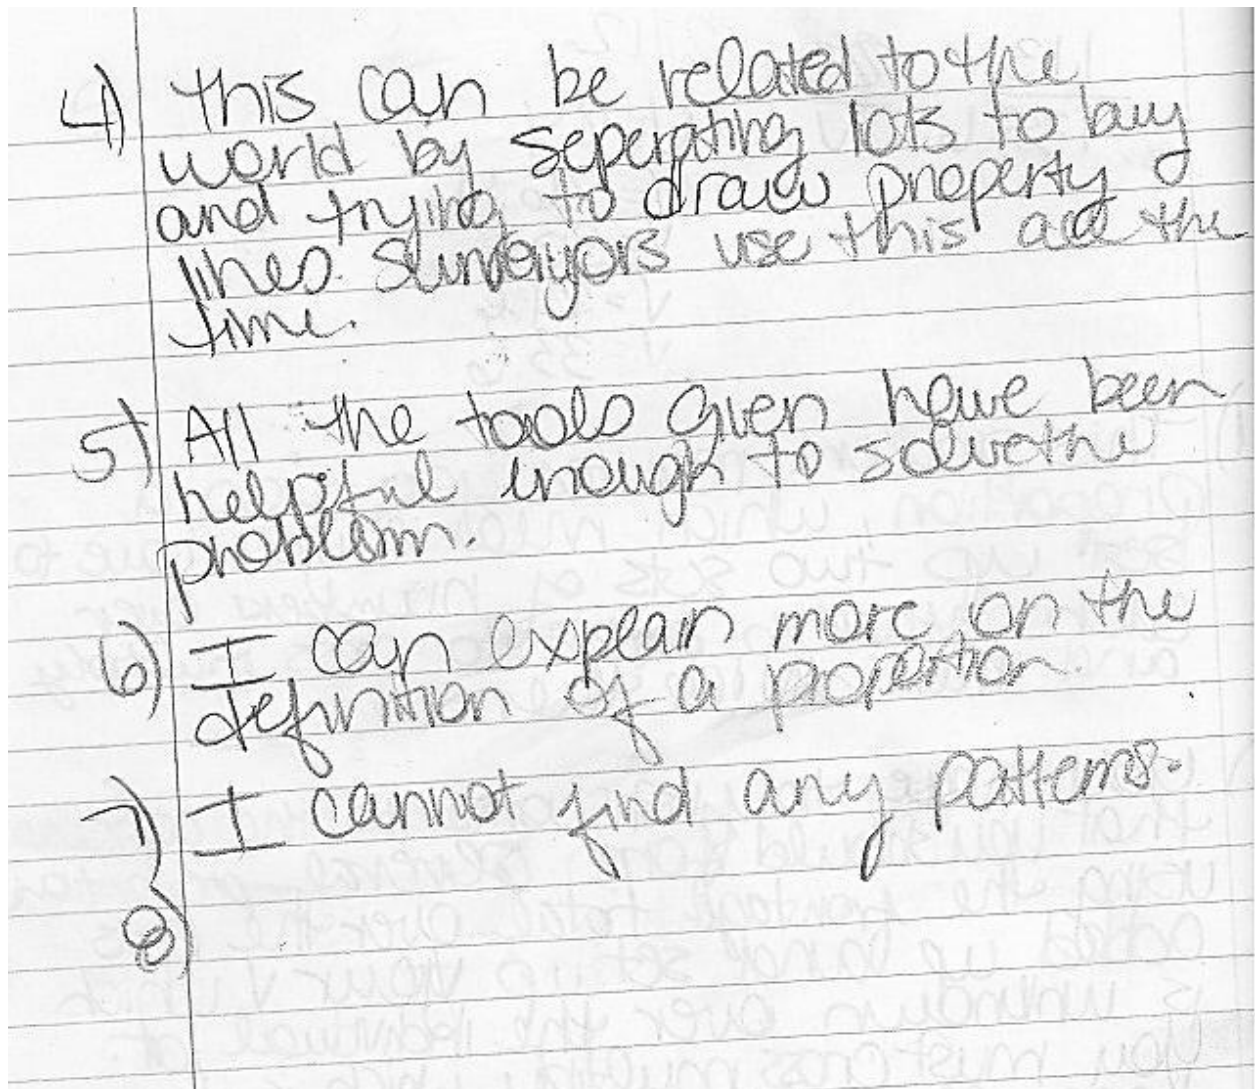 4) this can be related to the
world by seperating lots to buy
and trying to draw property
lines. Surveyors use this all the
time.
5) All the tools given have been
helpful enough to solve the
problem.
6) I can explain more on the
definition of a proportion.
7) I cannot find any patterns.
8)